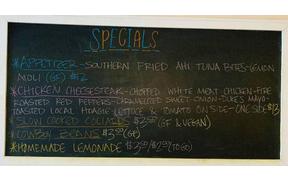 SPECIALS
*APPETIZER - SOUTHERN FRIED AHI TUNA BITES - LEMON
AIOLI (GF) $12
*CHICKEN CHEESESTEAK - CHOPPED WHITE MEAT CHICKEN - FIRE
ROASTED RED PEPPERS - CARAMELIZED SWEET ONION - DUKES MAYO -
TOASTED LOCAL HOAGIE LETTUCE & TOMATO ON SIDE - ONE SIDE $13
*SLOW COOKED COLLARDS $2.50 (GF & VEGAN)
*COWBOY BEANS $3.00 (GF)
*HOMEMADE LEMONADE